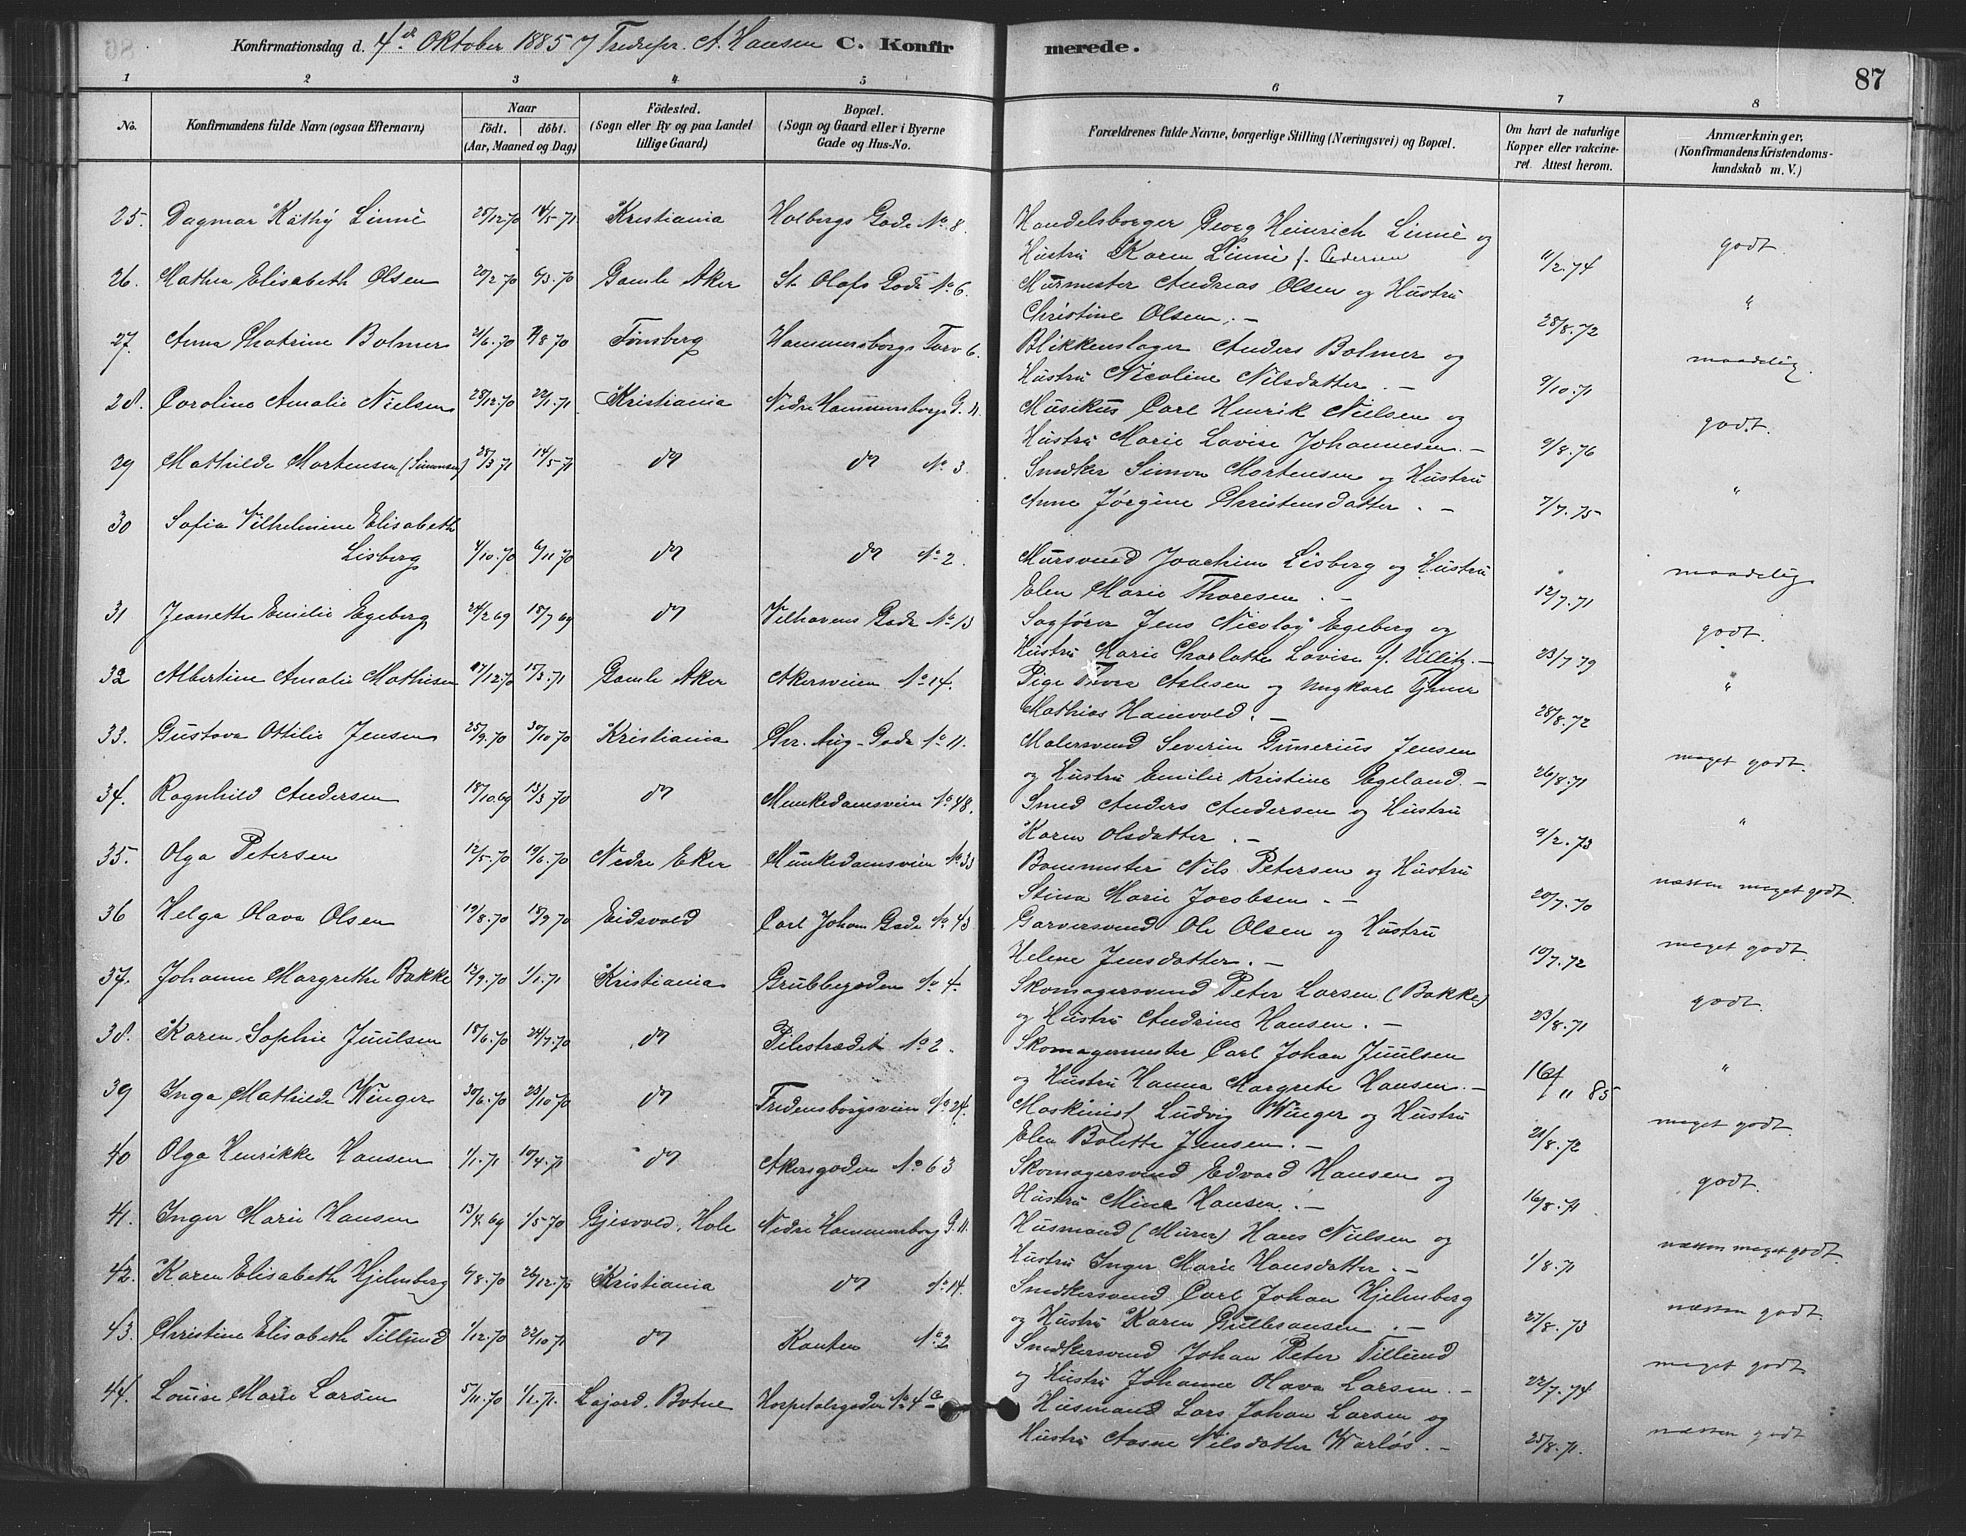 Konfirmationsdag d. 4de Oktober 1885 A. Hansen C. Konfirmerede.
87
1 2 3 4 5 6 7 8
No. Konfirmandens fulde Navn (ogsaa Efternavn) Naar födt. döbt. (Aar, Maaned og Dag) Födested. (Sogn eller By og paa Landet tillige Gaard) Bopæl. (Sogn og Gaard eller i Byerne Gade og Hus-No. Forældrenes fulde Navne, borgerlige Stilling (Næringsvei) og Bopæl. Om havt de naturlige Kopper eller vakcineret. Attest herom. Anmærkninger. (Konfirmandens Kristendomskundskab m. V.)
25. Dagmar Käthy Linné 25/12.70 14/5.71 Kristiania Holbergs Gade No. 8. Handelsborger Georg Heinrich Linné og
Hustru Karen Linné f. Pedersen 11/2.74 godt.
26. Mathea Elisabeth Olsen 20/2.70 6/3.70 Gamle Aker St. Olafs Gade No. 6. Murmester Andreas Olsen og Hustru
Christine Olsen. – 28/8.72 "
27. Anna Chatrine Bolmer 21/6.70 /8 70 Tønsberg Hammersborgs Torv 6. Blikkenslager Anders Bolmer og
Hustru Nicoline Nilsdatter. – 9/10.71 maadelig.
28. Caroline Amalie Nielsen 28/12.70 22/1.71 Kristiania Nedre Hammersborgs G. 11. Musikus Carl Henrik Nielsen og
Hustru Marie Lovise Johannesen. – 9/8.76 godt.
29 Mathilde Mortensen (Simonsen) 28/3 71 14/5.71 do do No. 3. Snedker Simon Mortensen og Hustru
Anne Jørgine Christensdatter. – 7/7.75 "
30 Sofia Vilhelmine Elisabeth
Lisberg 4/10.70 6/11 70 do do No. 2. Mursvend Joachim Lisberg og Hustru
Elen Marie Thoresen. – 12/7.71 maadelig
31 Jeanette Emilie Egeberg 24/2 69 18/7 69 do Velhavens Gade No. 13 Sagfører Jens Nicolay Egeberg og
Hustru Marie Charlotte Lovise f. Ullitz. – 23/7.79 godt.
32 Albertine Amalie Mathisen 17/12.70 15/3.71 Gamle Aker Akersveien No. 14. Pige Thora Aslesen og Ungkarl
Mathias Hainvold. – 28/8.72 "
33. Gustava Ottilie Jensen 25/9.70 30/10 70 Kristiania Chr. Aug. Gade No. 11. Malersvend Severin Gunerius Jensen
og Hustru Emilie Kristine Egeland. – 26/8.71 meget godt.
34. Ragnhild Andersen 18/10.69 13/3 70 do Munkedamsveien No. 48. Smed Anders Andersen og Hustru
Karen Olsdatter. – 9/2.73 "
35. Olga Petersen 12/5.70 19/6.70 Nedre Eker Munkedamsveien No. 33 Bommester Nils Petersen og Hustru
Stina Marie Jacobsen. – 20/7.70 næsten meget godt.
36 Helga Olava Olsen 19/8.70 18/9 70 Eidsvold Carl Johans Gade No. 43 Garversvend Ole Olsen og Hustru
Helene Jensdatter. – 10/7.72 meget godt.
37. Johanne Margrethe Bakke 12/9.70 1/1.71 Kristiania Grubbegaden No. 4. Skomagersvend Peter Larsen (Bakke)
og Hustru Andrine Hansen. – 23/8.71 godt.
38. Karen Sophie Juulsen 18/6.70 24/7.70 do Pilestrædet No. 2. Skomagermester Carl Johan Juulsen
og Hustru Hanna Margrete Hansen. – 16/11 85 "
39 Inga Mathilde Winger 30/6.70 23/10.70 do Fredensborgsveien No. 24. Maskinist Ludvig Winger og Hustru
Elen Bolette Jensen. – 21/8.72 meget godt.
40 Olga Henrikke Hansen 1/1.71 10/4.71 do Akersgaden No. 63 Skomagersvend Edvard Hansen og
Hustru Mina Hansen. – 16/8.71 godt.
41. Inger Marie Hansen 13/4.69 1/5.70 Gjesvold, Hole Nedre Hammersborg G. 11. Husmand (Murer) Hans Nielsen og
Hustru Inger Marie Hansdatter. – 1/8.71 næsten meget godt.
42. Karen Elisabeth Hjelmberg 6/8.70 26/12.70 Kristiania do No. 14. Snedkersvend Carl Johan Hjelmberg
og Hustru Karen Gulbransen. – 27/8.73 næsten godt.
43. Christine Elisabeth Tillund 1/12.70 22/10.71 do Kanten No. 2 Snedkersvend Johan Peter Tillund
og Hustru Johanne Olava Larsen. – 22/7.74 meget godt.
44. Louise Marie Larsen 5/11.70 1/1.71. Botne Hospitalsgaden No. 4c Husmand Lars Johan Larsen og
Hustru Aasne Nilsdatter Warløs. – 25/8.71. næsten godt